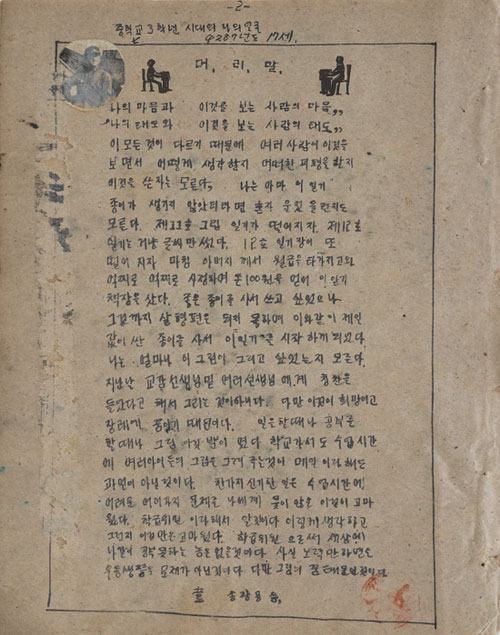 -2-
중학교 3학년 시대의 나의 얼골
4287년도 17세.
머, 리, 말,
나의 마음과 이것을 보는 사람의 마음,,
나의 태도와 이것을 보는 사람의 태도,,
이 모든것이 다르기 때문에 여러사람이 이것을
보면서 어떻게 생각할지 어떠한 비평을 할지
이것을 쓴 자는 모른다, 나는 아마 이 일기
종이가 생기지 않았다면 혼자 울지
모른다. 제11호 그림 일기가 떨어지자. 제12호
일기는 그냥 글씨만 썼다. 12호 일기장이 또
떨어지자 마침 아버지께서 월급을 타가지고와
어찌로 어찌로 사정하여 돈100원을 얻어 이 일기
책장을 샀다. 좋은 종이를 사서 쓰고 싶었으나
그렇까지 살 형편은 되지 못하여 이와같이 제일
값이 싼 종이를 사서 이일기를 시작하게 되었다.
나는 얼마나 이 그림이 그리고 싶었는지 모른다.
지난난 교장선생님및 여러선생님에게 칭찬을
들었다고 해서 그리는 것이아니다. 다만 이것이 희망이고
장래기 때문이다. 일은할때나 공부를
할때나 그림 이것 밖이 없다 학교가서도 수업시간
에 여러아이들의 그림을 그려 주는것이 매일 이라 해도
과언이 아닐것이다. 한가지 신기한 일은 수업시간에
어려운 여러가지 문제를 나에게 묻
학급위원 이라해서 알것이다 이렇게 생각하고
학급위원 으로써 세상에
나같이 공부 못하는 놈은 없을것이다 사실 노력만 하면도
우등생쯤은 문제가 아닌것이다 다만 그림의
송창용